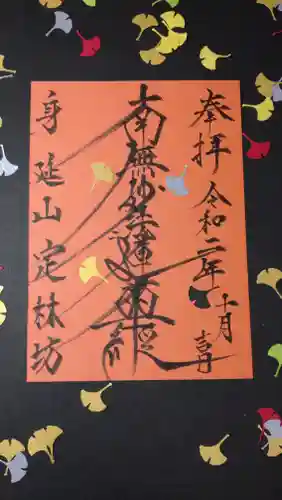 奉拝 令和二年十月吉日
南無妙法蓮華経
身延山 定林坊